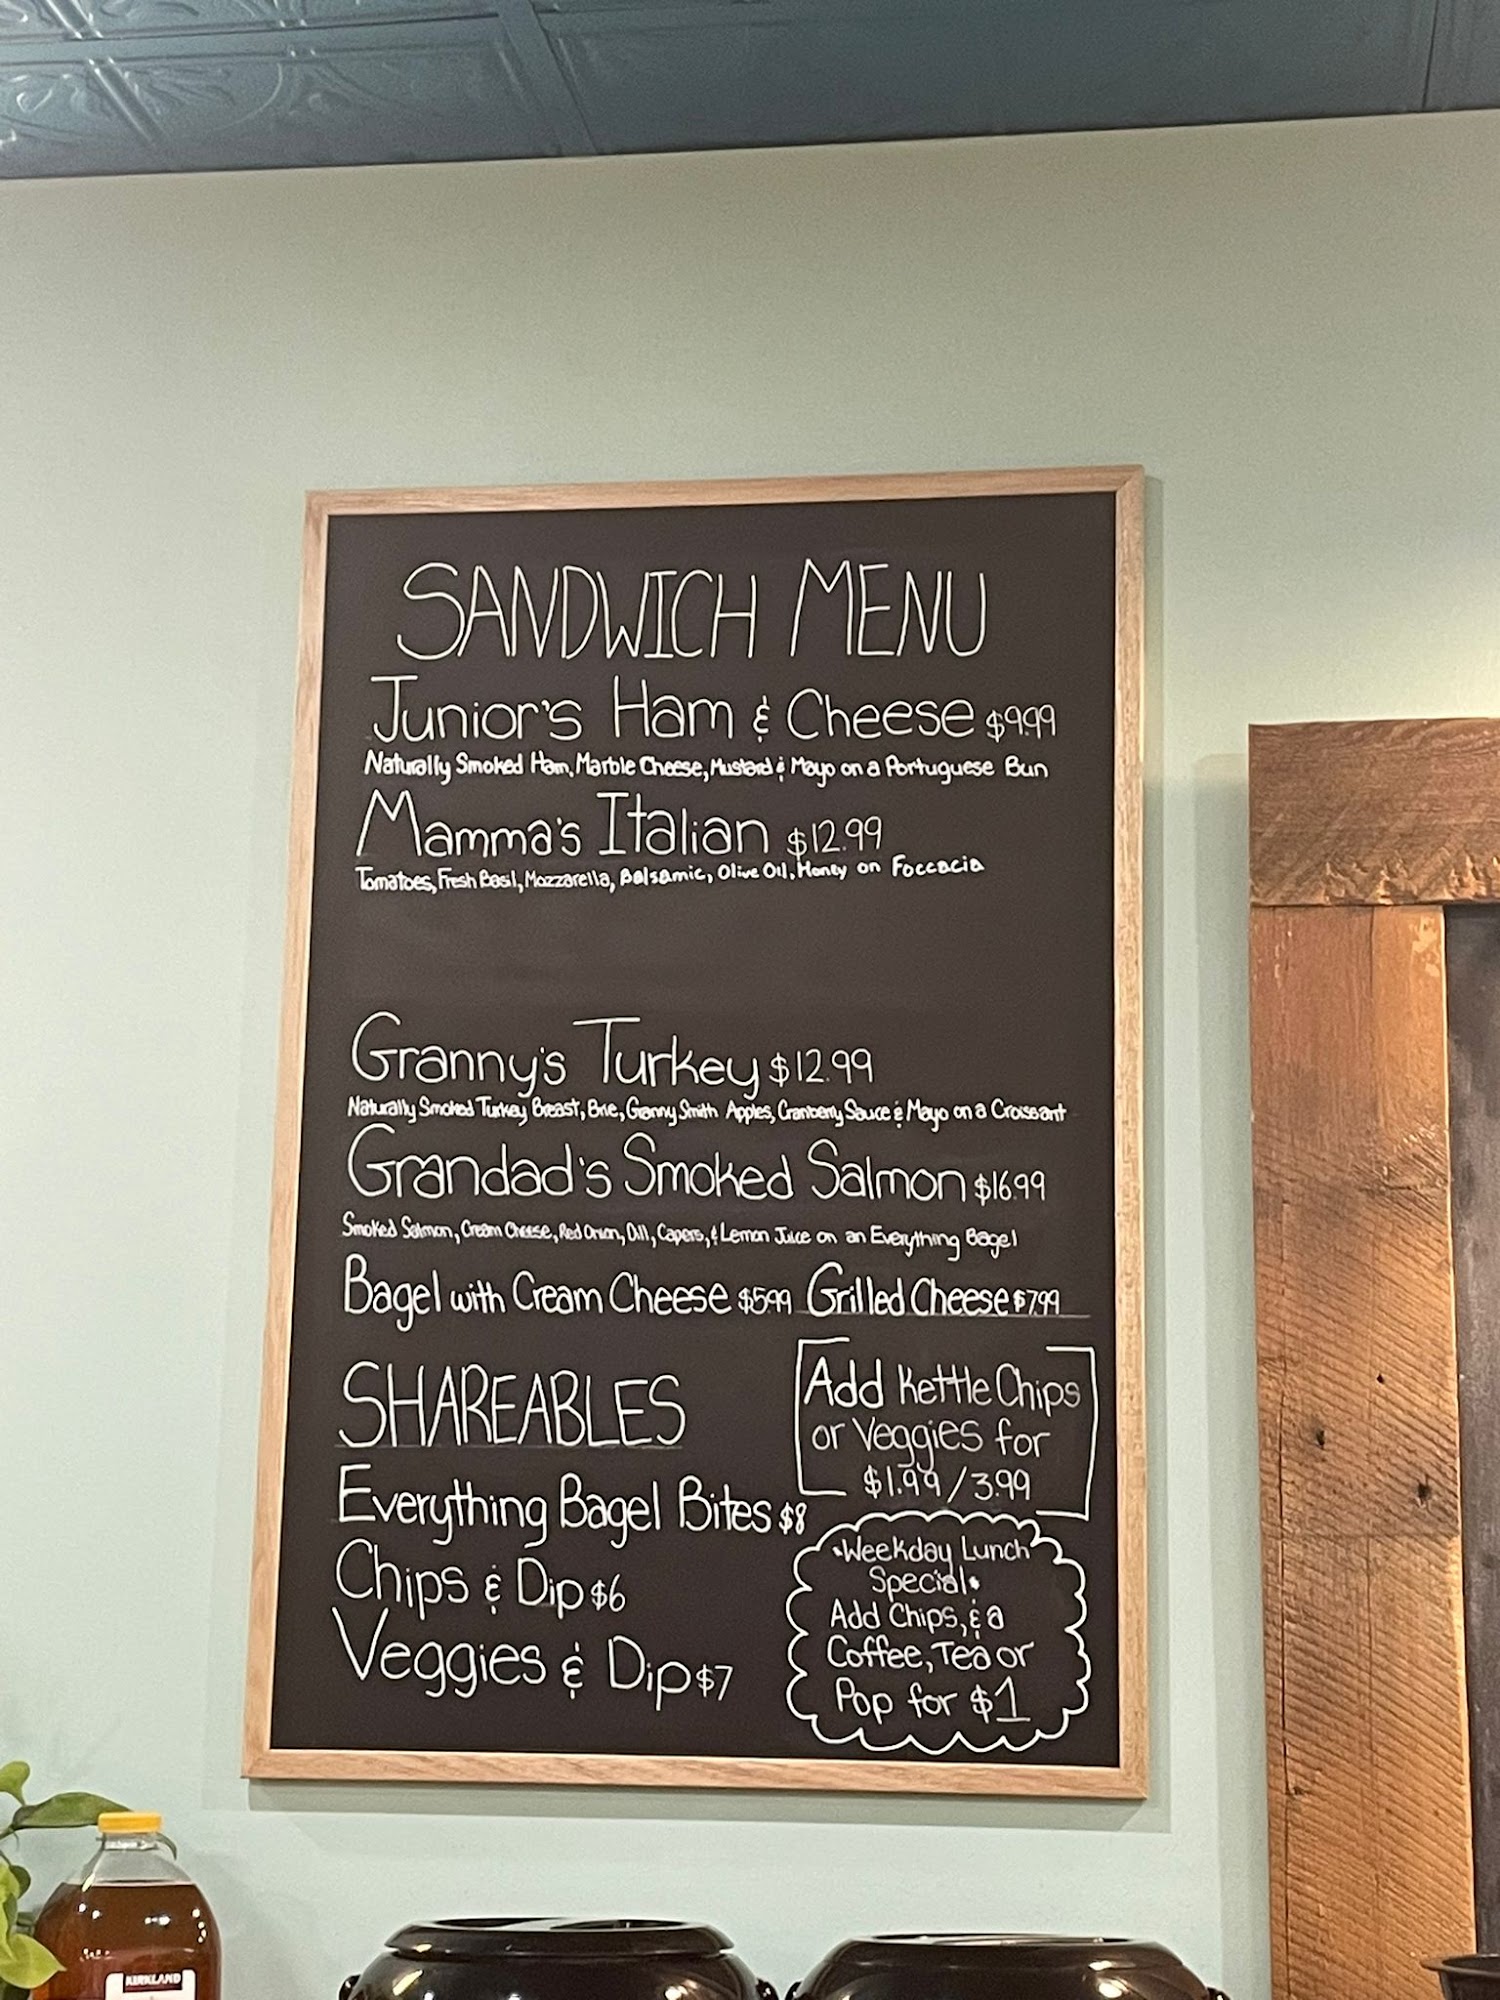 SANDWICH MENU
Junior's Ham & Cheese $9.99
Naturally Smoked Ham, Marble Cheese, Mustard & Mayo on a Portuguese Bun
Mamma's Italian $12.99
Tomatoes, Fresh Basil, Mozzarella, Balsamic, Olive Oil, Honey on Foccacia
Granny's Turkey $12.99
Naturally Smoked Turkey Breast, Brie, Granny Smith Apples, Cranberry Sauce & Mayo on a Croissant
Grandad's Smoked Salmon $16.99
Smoked Salmon, Cream Cheese, Red Onion, Dill, Capers, & Lemon Juice on an Everything Bagel
Bagel with Cream Cheese $5.99 Grilled Cheese $7.99
SHAREABLES
Everything Bagel Bites $8
Chips & Dip $6
Veggies & Dip $7
Add Kettle Chips
or Veggies for
$1.99 / 3.99
•Weekday Lunch
Special•
Add Chips, & a
Coffee, Tea or
Pop for $1
KIRKLAND